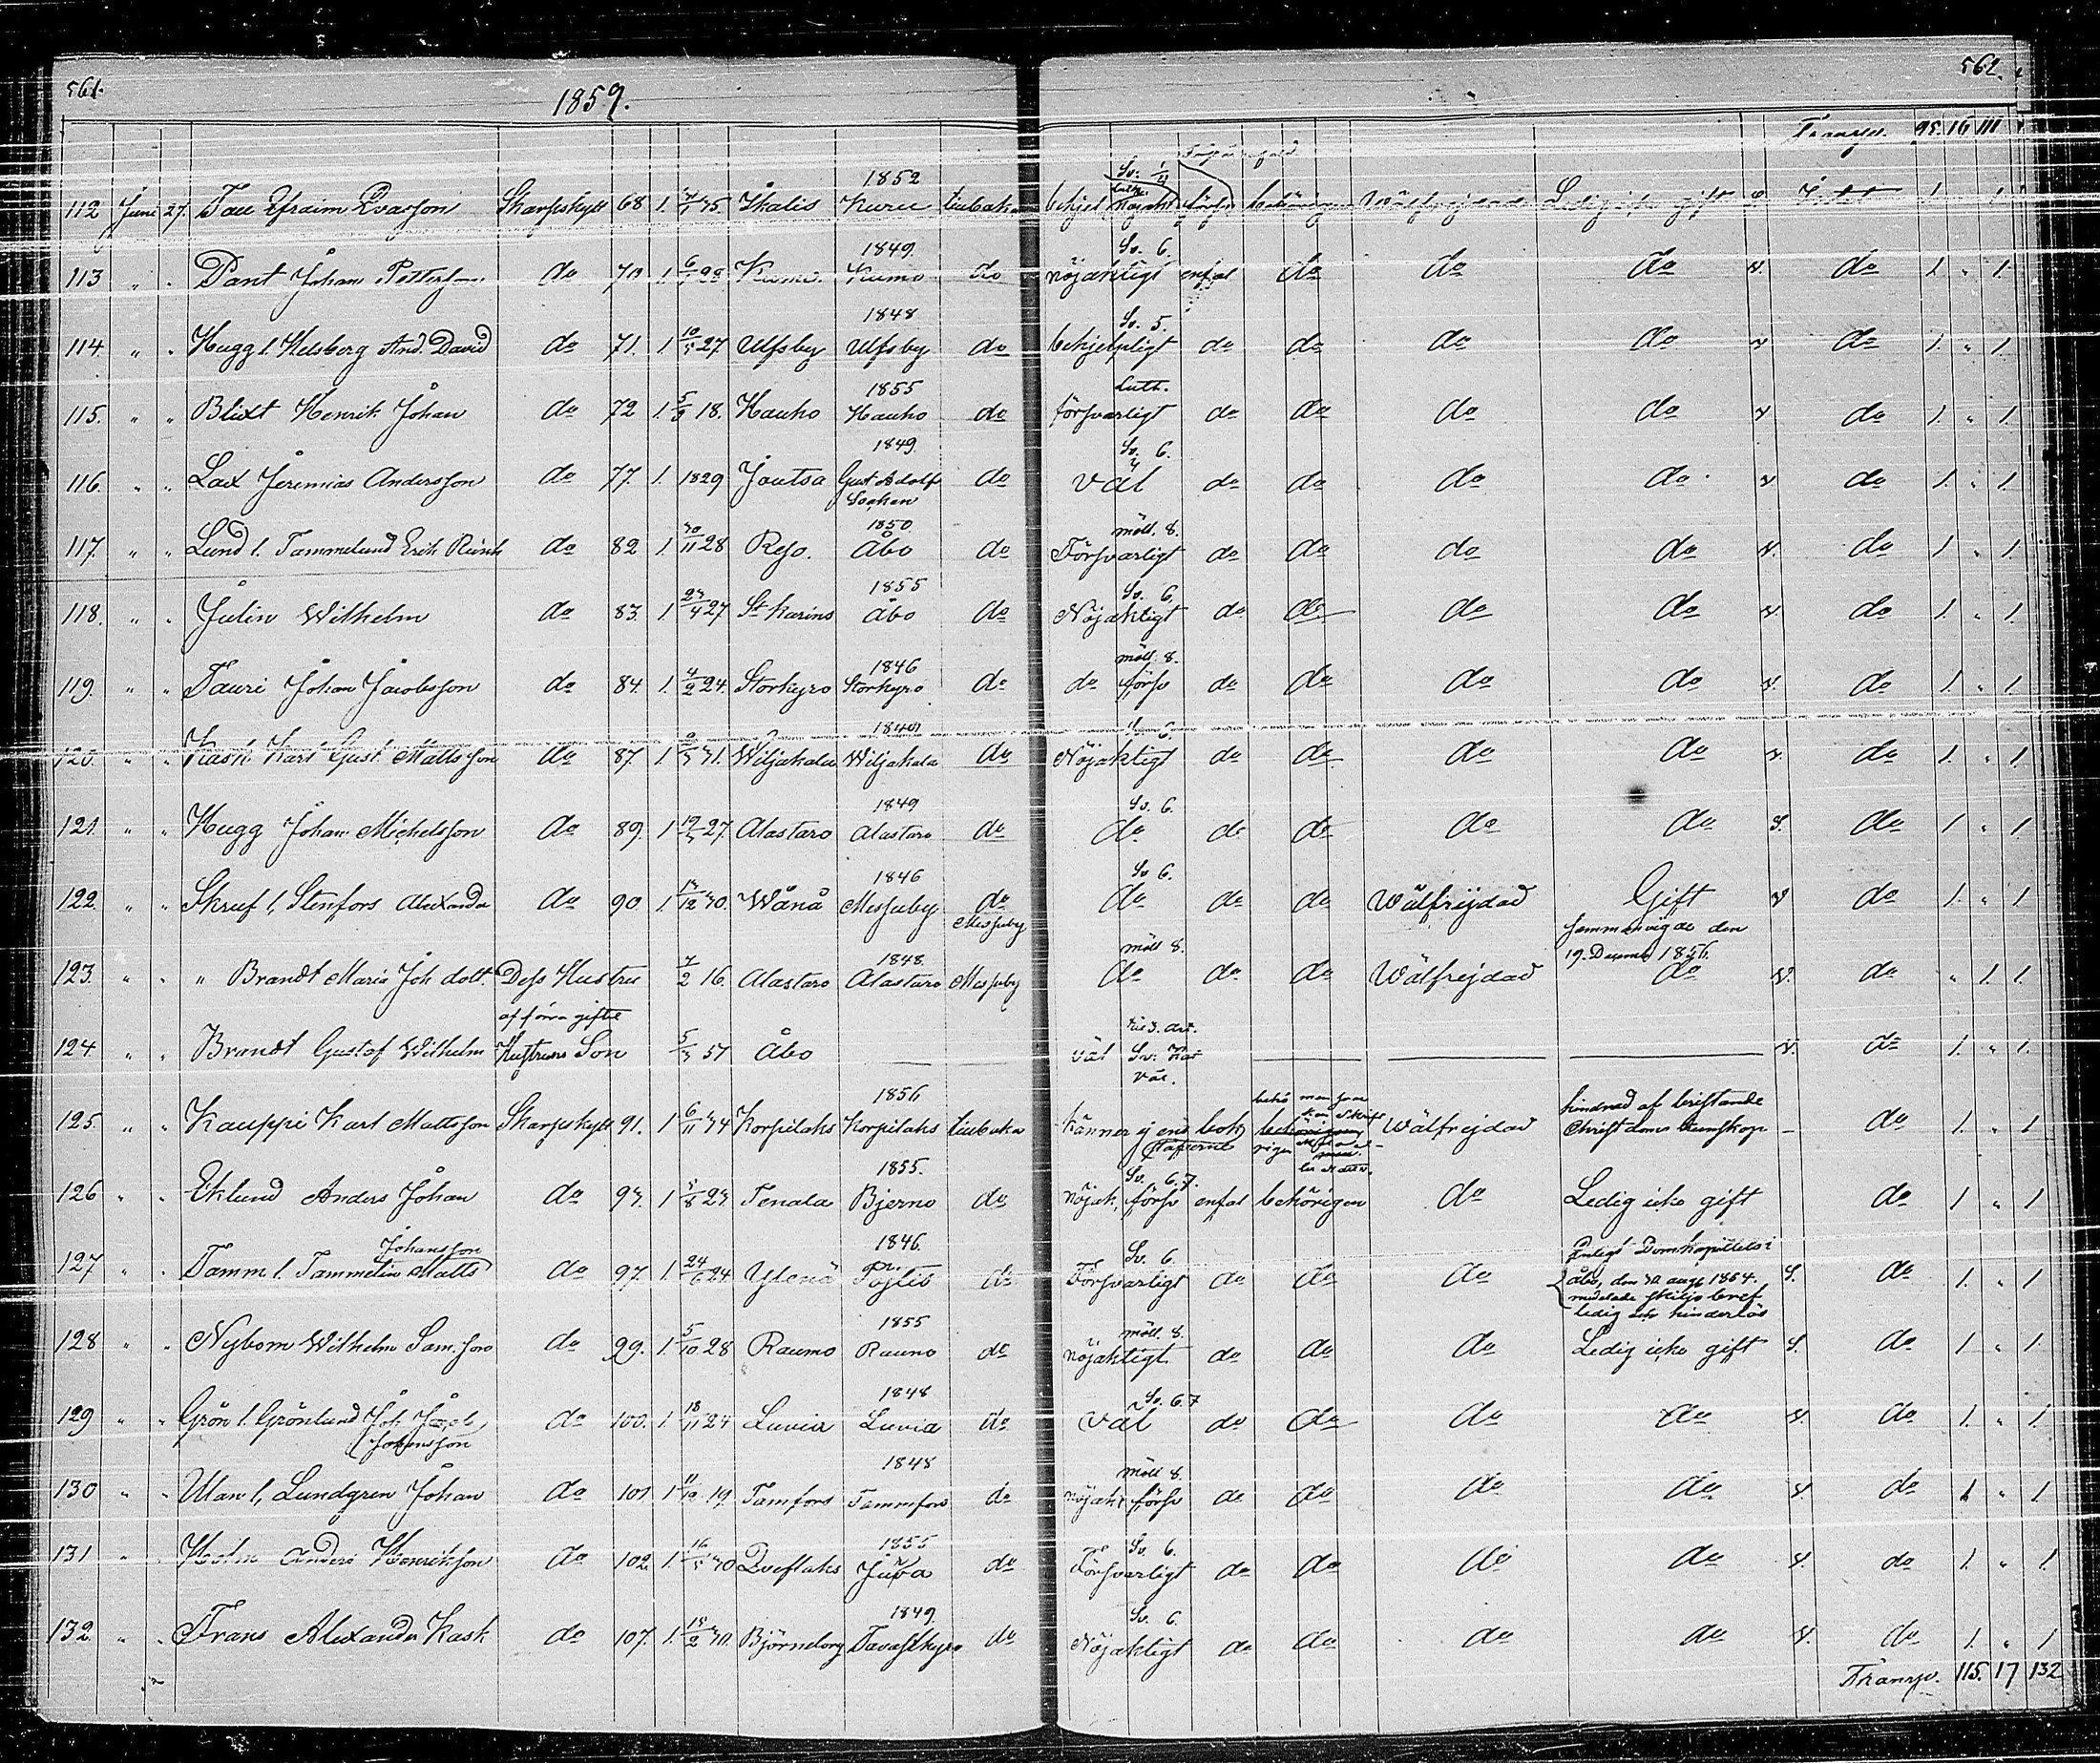 561.
562.
1859.
Transp. 95. 16 111
112 Juni 27. Efraim Esasson Skarpskytt 68 1. Ikalis 1852 Kuru tillbaka Ledig icke gift 1. 1
113 " " Pant Johan Pettersson do 70 1. Kumo Kumo 1849. do nöjaktigt Sv. 6. enfal do do do do 1. " 1.
114. " " Hugg l. Helsberg And. David do 71. 1. 10/5 27 Ulfsby Ulfsby 1848 do behjelpligt Sv. 5. do do do do do 1. " 1.
115. " " Blixt Henrik Johan do 72 1. 18. Hauho Hauho 1855 do försvarligt Luth. do do do do do 1. " 1.
116. " " Lax Jeremias Andersson do 77. 1. 1829 Joutsa 1849 Gust Adolfs Socken do väl Sv. 6. do do do do do 1. " 1.
117. " " Lund l. Tammelund Erik do 82 1. 30/11 28 Reso. 1850 Åbo do Försvarligt möll. 8. do do do do do 1 " 1.
118. " " Julin Wilhelm do 83. 1 23/4 27 St Karins 1855 Åbo do Nöjaktigt Sv. 6. do do do do do 1. " 1.
119. " " Tauri Johan Jacobsson do 84. 1. 4/2 24. Storkyro 1846 Storkyro do do möll. 8. försv do do do do do 1. " 1.
120. " " Kask Karl Gust. Mattsson do 87. 1 31. Wiljakala 1849 Wiljakala do Nöjaktigt Sv. 6. do do do do do 1. " 1
121. " " Hugg Johan Michelsson do 89. 1 27. Alastaro 1849 Alastaro do do Sv. 6. do do do do do 1 " 1.
122. " " Skruf l. Stenfors Alexander do 90 1. 30. Wånå 1846 Messuby do Messuby do Sv 6. do do Wälfrejdad Gift sammanvigde den 19. December 1856. do 1. " 1
123. " " " Brandt Maria Joh dott. Dess Hustru 16. Alastaro 1848. Alastaro Messuby do möll 8. do do Wälfrejdad do do " 1. 1.
124 " " Brandt Gustaf Wilhelm Hustruns Son af förra giftet 51 Åbo väl väl. do 1. " 1.
125. " " Kauppi Karl Mattsson Skarpskytt 91. 1 6/11 34 Korpilaks 1856 Korpilaks tillbaka känner ej ens bokstäfverne Wälfrejdad hindrad af bristande Christdoms kunskap do 1. " 1
126 " " Eklund Anders Johan do 93. 1 23. Tenala 1855. Bjerno do nöjak, försv Sv. 6.7. enfal behörigen do Ledig icke gift do 1 " 1
127 " " Tamm l. Tammelin Matts Johansson do 97. 1. 24/6 24 Ylenä 1846. Pöjtis do Försvarligt Sv. 6. do do do Enligt Domkapitlets i Åbo, den 30 aug 1854. meddelade skiljobref ledig hinderlös do 1. " 1
128 " " Nybom Wilhelm Sam.son do 99. 1. 5/10 28 Raumo 1855 Raumo do nöjaktigt. möll. 8. do do do Ledig icke gift do 1 " 1.
129 " " Grön l. Grönlund Joh Jacob Johansson do 100. 1. 18/11 24 Luvia 1848 Luvia do väl Sv. 6.7 do do do do do 1. " 1
130 " " Ulan l. Lundgren Johan do 101 1 19 Tamfors 1848 Tammfors do nöjakt försv möll 8. do do do do do 1 " 1
131 " " Holm Anders Henriksson do 102. 1. 30 Qveflaks Juva do Försvarligt Sv. 6. do do do do do 1. " 1.
132 " " Frans Alexander Kask do 107. 1. Björneborg 1849. Tavastkyro do Nöjaktigt Sv. 6. do do do do do 1. " 1
Transp. 115. 17 132